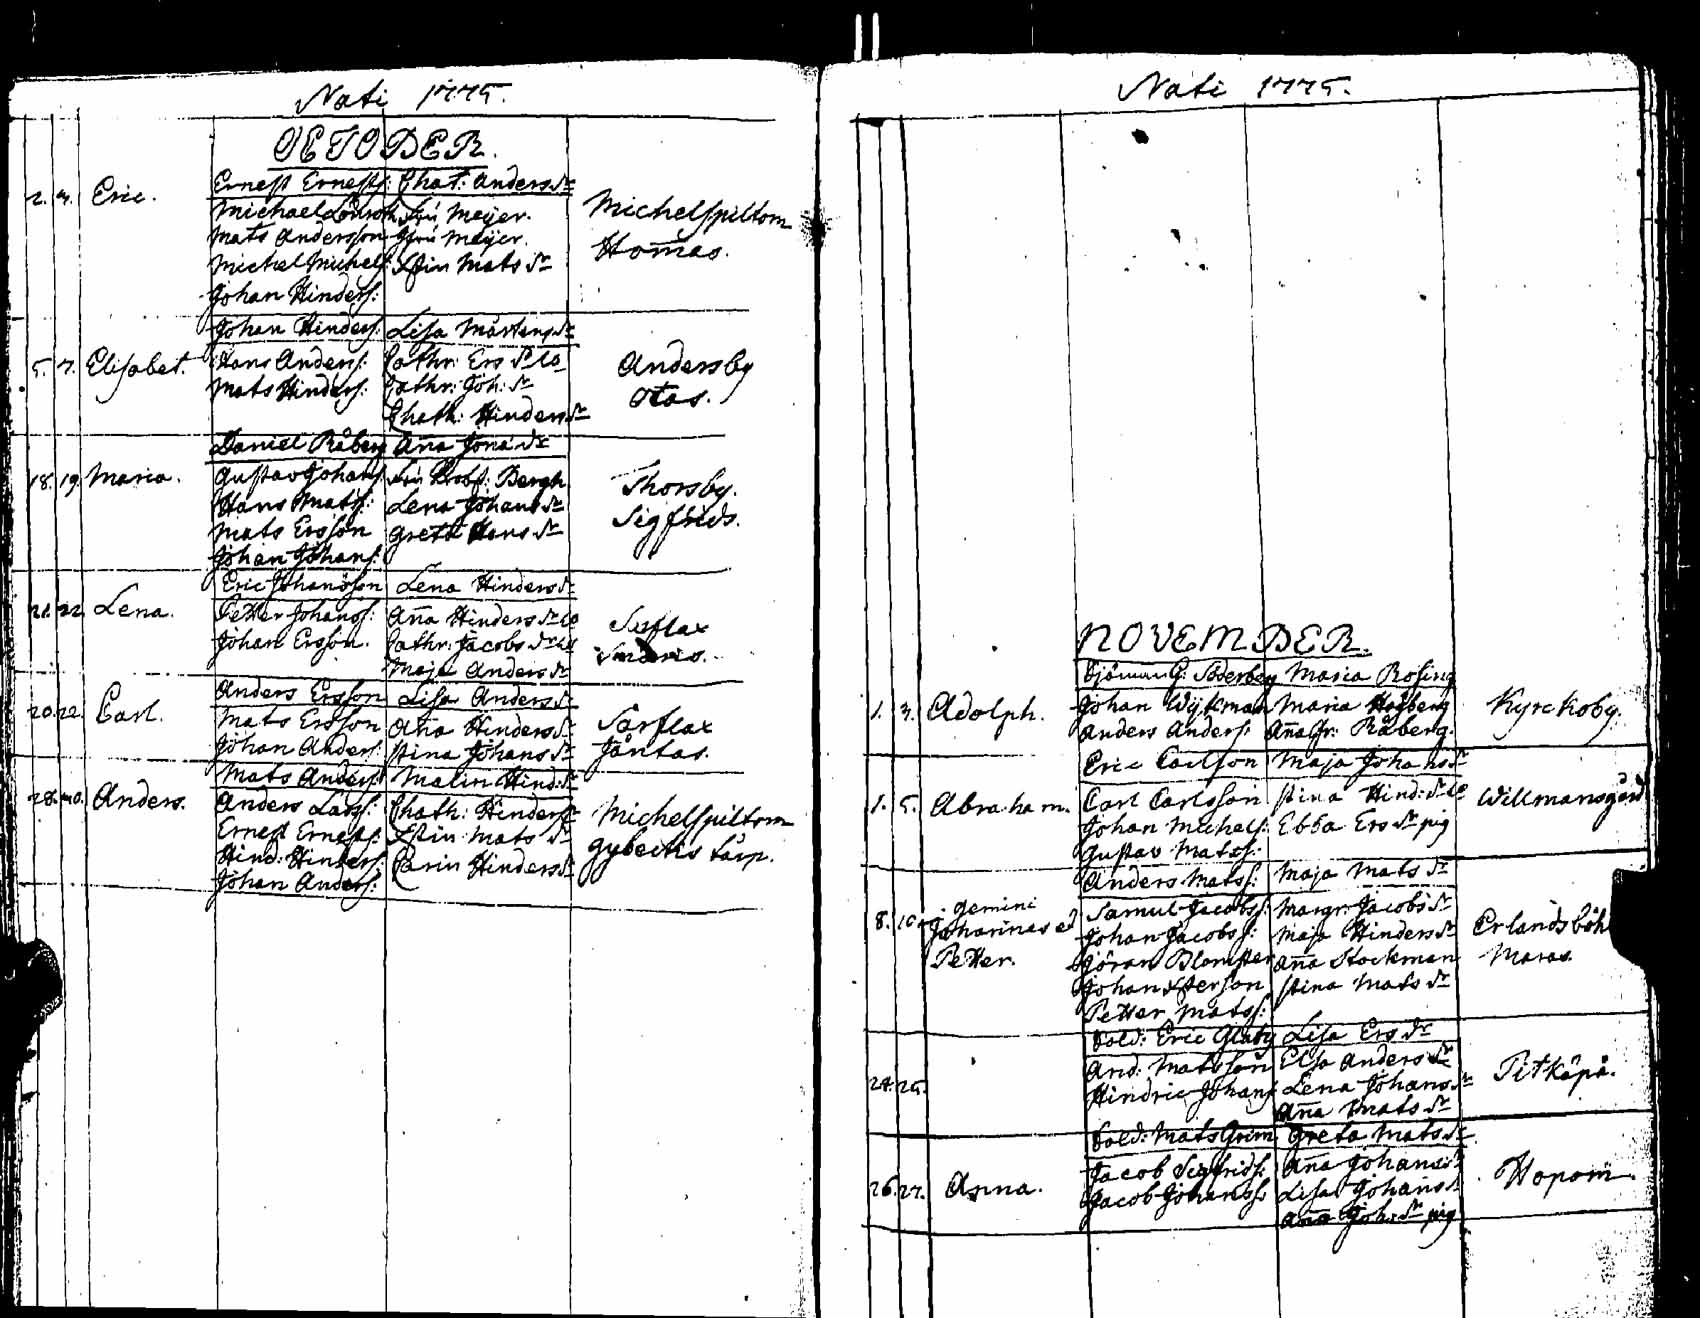 Nati 1775.
OCTOBER.
Ernest Ernests: Chat: Anders dr
2. 3. Eric. Michael Lönroth Fru Meijer. Michelspiltom
Mats Andersson Jfru Meijer. Homas.
Michel Michels: Stin Mats dr
Johan Hinders:
Johan Hinders: Lisa Mårtens dr
5. 7. Elisabet. Hans Anders: Cathr: Ers dr Andersby
Mats Hinders: Cathr: Joh: dr Otas.
Chath: Hinders dr
Daniel Råberg Aña Jona dr
18. 19. Maria. Gustav Johans: Fru Probst: Bergh Thorsby.
Hans Mats: Lena Johans dr Sigfrids.
Mats Ersson Greta Hans dr
Johan Johans:
Eric Johansson Lena Hinders dr
21. 22. Lena. Petter Johans: Aña Hinders dr Sarflax
Johan Ersson. Cathr: Jacobs dr
Maja Anders dr
Anders Ersson Lisa Anders dr
20. 22. Carl. Mats Ersson Aña Hinders dr Sarflax
Johan Anders: Stina Johans dr Jåntas.
Mats Anders: Malin Hind: dr
28. 30. Anders. Anders Lars: Chath: Hinders dr Michelspiltom
Ernest Ernests: Stin Mats dr gybeckis torp.
Hind: Hinders: Carin Hinders dr
Johan Anders:
Nati 1775.
NOVEMBER.
G: Söderberg Maria Rosing
1. 3. Adolph. Johan Wijkman Maria Högberg Kyrckoby.
Anders Anders: Aña Gr: Råberg.
Eric Carlson Maja Johans dr
1. 5. Abraham. Carl Carlsson Stina Hind: dr Willmansgård
Johan Michels: Ebba Ers dr pig
Gustav Mats:
Anders Mats: Maja Mats dr
8. 10. gemini Samul Jacobs: Margr: Jacobs dr
Johannes et Johan Jacobs: Maja Hinders dr Erlandsböhl
Petter. Jöran Blomster Aña Stockman Maras.
Johan Stina Mats dr
Petter Mats:
Sold: Eric Glaby Lisa Ers dr
24. 25. And: Matsson Elsa Anders dr Pitkäpå.
Hindric Johans: Lena Johans dr
Aña Mats dr
Sold: Mats Grim Greta Mats dr
26. 27. Anna. Jacob Sigfrids: Aña Johans dr Hopom
Jacob Johans: Lisa Johans dr
Aña Joh: dr pig